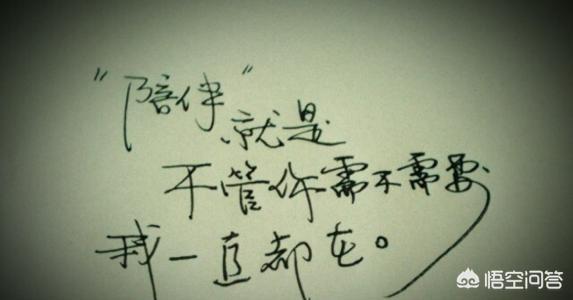 “陪伴”
就是
不管你需不需要
我一直都在。
悟空问答